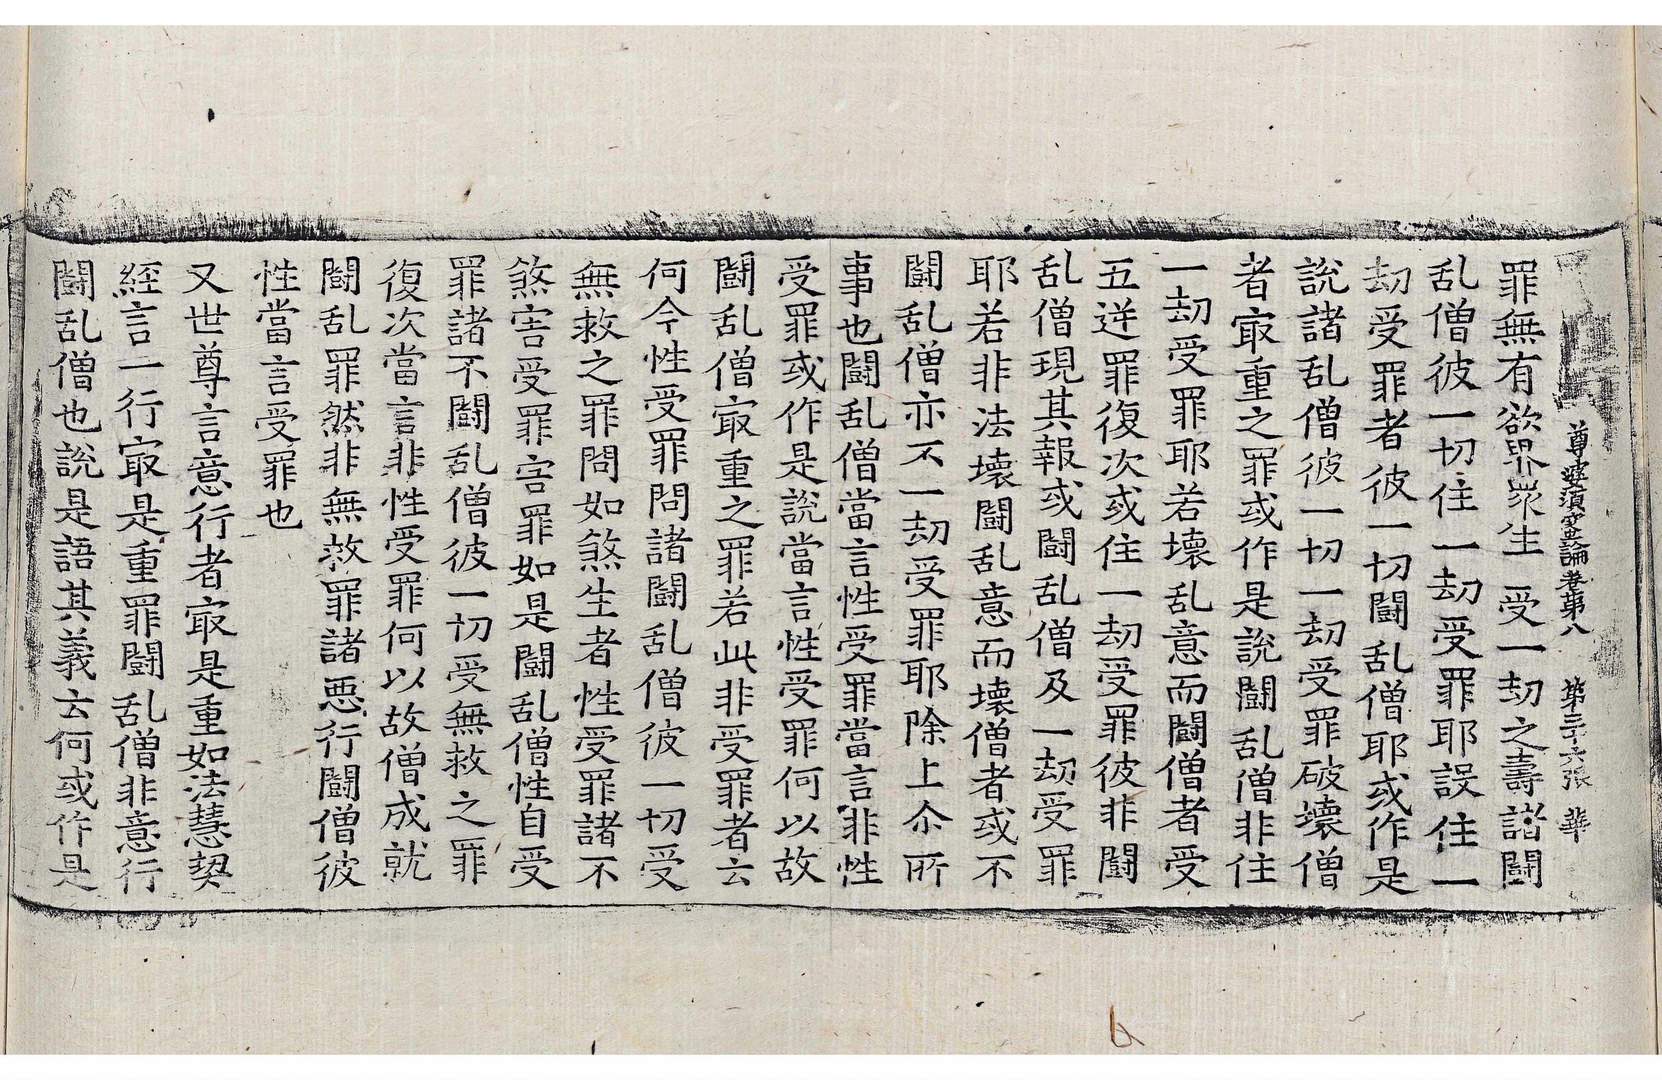 尊婆須蜜論卷第八 第三十六張 華
罪無有欲界衆生受一劫之壽諸鬪
乱僧彼一切住一劫受罪耶誤住一
劫受罪者彼一切鬪乱僧耶或作是
說諸乱僧彼一切一劫受罪破壞僧
者㝡重之罪或作是說鬪乱僧非住
一劫受罪耶若壞乱意而鬪僧者受
五逆罪復次或住一劫受罪彼非鬪
乱僧現其報或鬪乱僧及一劫受罪
耶若非法壞鬪乱意而壞僧者或不
鬪乱僧亦不一劫受罪耶除上尒所
事也鬪乱僧當言性受罪當言非性
受罪或作是說當言性受罪何以故
鬪乱僧㝡重之罪若此非受罪者云
何今性受罪問諸鬪乱僧彼一切受
無救之罪問如煞生者性受罪諸不
煞害受罪害罪如是鬪乱僧性自受
罪諸不鬪乱僧彼一切受無救之罪
復次當言非性受罪何以故僧成就
鬪乱罪然非無救罪諸惡行鬪僧彼
性當言受罪也
又世尊言意行者㝡是重如法慧契
經言一行㝡是重罪鬪乱僧非意行
鬪乱僧也說是語其義云何或作是